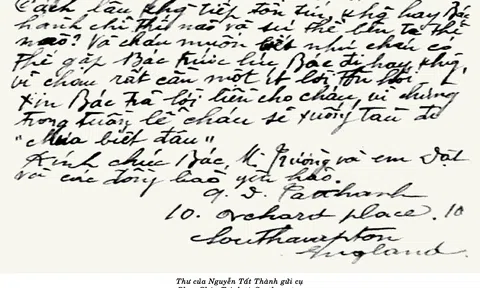 Cách lâu không tiếp đón tin, không hay Bác
hành chỉ thế nào và sự thể bên ta thế
nào? Và cháu muốn biết như cháu có
thể gặp Bác trước lúc Bác đi hay không,
vì cháu rất cần một ít lời
xin Bác trả lời liền cho cháu, vì chừng
trong tuần lễ cháu sẽ xuống tàu đi
"chưa biết đâu"
Kính chúc Bác, M. Trường và em Dật
và các đồng bào yên hảo.
10. orchard place. 10
Southampton
England.
Thư của Nguyễn Tất Thành gửi cụ